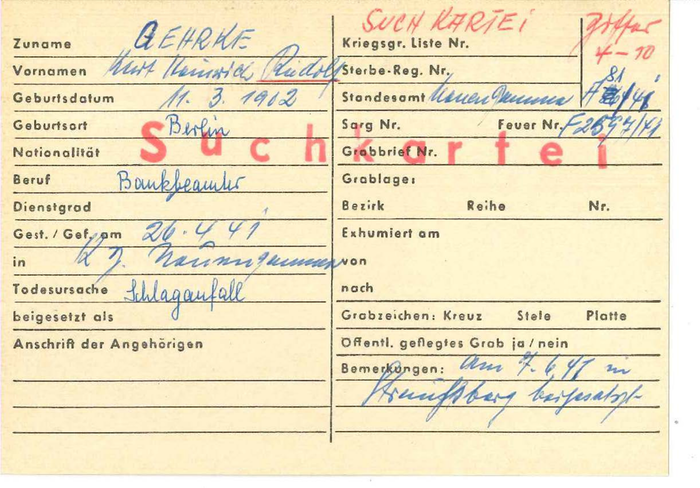 SUCHKARTEI
Ziffer
4-10
Suchkartei
Zuname GEHRKE
Vornamen Kurt Heinrich Rudolf
Geburtsdatum 11.3.1902
Geburtsort Berlin
Nationalität
Beruf Bankbeamter
Dienstgrad
Gest./Gef. am 26.4.41
in KZ. Neuengamme
Todesursache Schlaganfall
beigesetzt als
Anschrift der Angehörigen
Kriegsgr. Liste Nr.
Sterbe-Reg. Nr.
Standesamt Neuengamme
Sarg Nr. Feuer Nr.
Grabbrief Nr.
Grablage:
Bezirk Reihe Nr.
Exhumiert am
von
nach
Grabzeichen: Kreuz Stele Platte
Öffentl. gepflegtes Grab ja/nein
Bemerkungen: am 7.6.41 in
beigesetzt